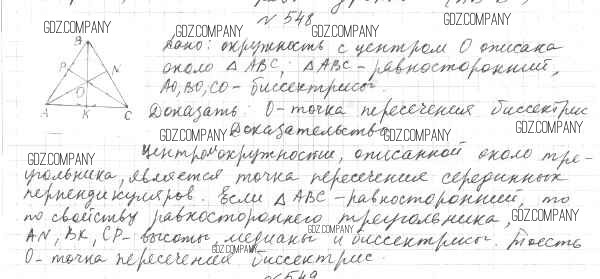 № 548
GDZ.COMPANY GDZ.COMPANY GDZ.COMPANY
B
Дано: окружность с центром О описана
P N
около △ABC; △ABC - равносторонний,
O
AO, BO, CO - биссектрисы.
A K C
Доказать: О - точка пересечения биссектрис
GDZ.COMPANY Доказательство GDZ.COMPANY GDZ.COMPANY
GDZ.COMPANY Центром окружности, описанной около тре-
угольника, является точка пересечения серединных
перпендикуляров. Если △ABC - равносторонний, то
по свойству равностороннего треугольника, GDZ.COMPANY
AN, BK, CP - высоты, медианы и биссектрисы. Тоесть
GDZ.COMPANY GDZ.COMPANY
О - точка пересечений биссектрис.
№ 549